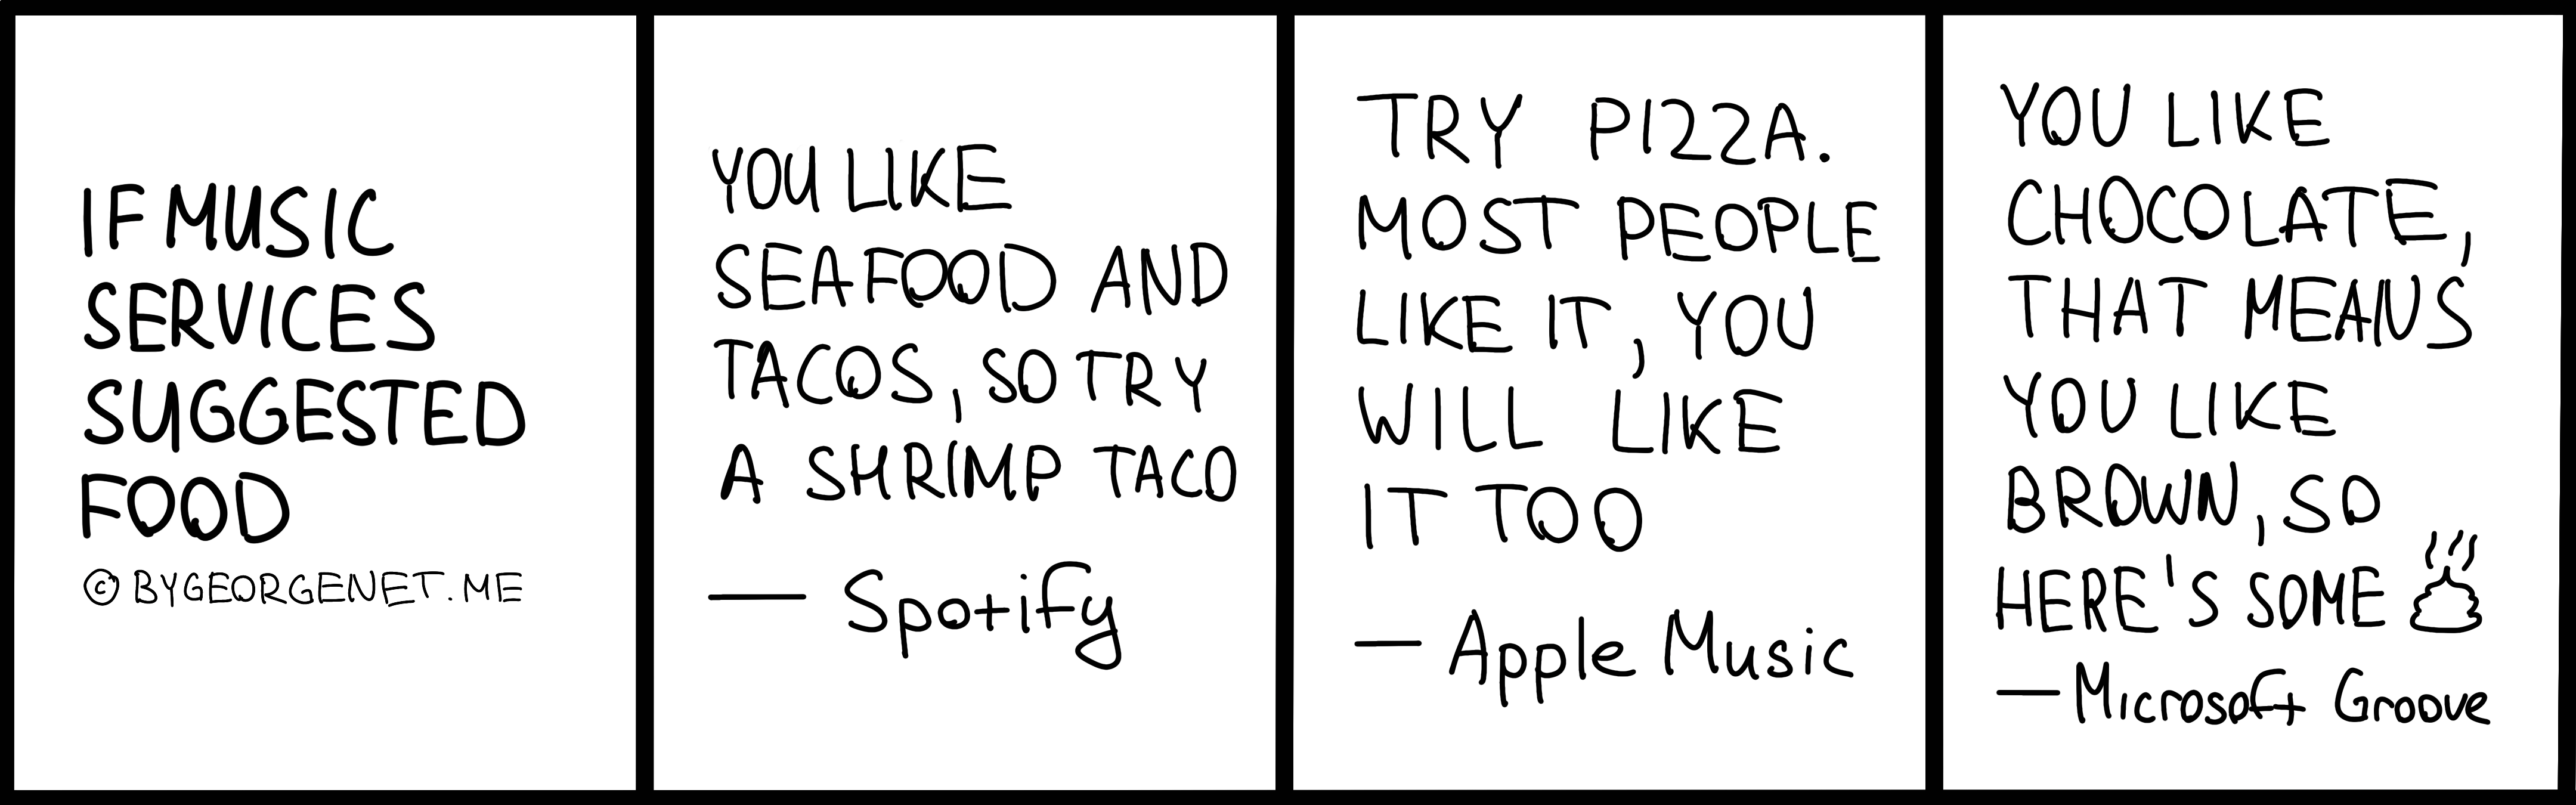 IF MUSIC
SERVICES
SUGGESTED
FOOD
© BYGEORGENET.ME
YOU LIKE
SEAFOOD AND
TACOS, SO TRY
A SHRIMP TACO
— Spotify
TRY PIZZA.
MOST PEOPLE
LIKE IT, YOU
WILL LIKE
IT TOO
— Apple Music
YOU LIKE
CHOCOLATE,
THAT MEANS
YOU LIKE
BROWN, SO
HERE'S SOME
— Microsoft Groove